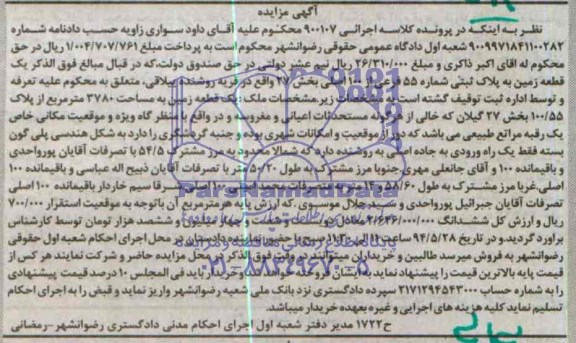 آگهی مزایده
نظر به اینکه در پرونده کلاسه اجرائی ۹۰۰۱۰۷ محکوم علیه آقای داود سواری زاویه حسب دادنامه شماره
۹۰۰۹۹۷۱۸۴۱۱۰۰۲۸۲ شعبه اول دادگاه عمومی حقوقی رضوانشهر محکوم است به پرداخت مبلغ ۱/۰۰۴/۷۰۷/۷۶۱ ریال در حق
محکوم له آقای اکبر ذاکری و مبلغ ۲۶/۳۱۰/۰۰۰ ریال نیم عشر دولتی در حق صندوق دولت،که در قبال مبالغ فوق الذکر یک
قطعه زمین به پلاک ثبتی شماره ۵۵ فرعی از اصلی بخش ۲۷ واقع در قریه روشنده اسلافی، متعلق به محکوم علیه تعرفه
و توسط اداره ثبت توقیف گشته است به مشخصات زیر.مشخصات ملک: یک قطعه زمین به مساحت ۳۷۸۰ مترمربع از پلاک
۱۰۰/۵۵ بخش ۲۷ گیلان که خالی از هرگونه مستحدثات اعیانی و مغروسه و در واقع از منظر گاه ویژه و موقعیت مکانی خاص
یک رقبه مراتع طبیعی می باشد که دور از موقعیت و امکانات شهری بوده و جنبه گردشگری را دارد به شکل هندسی پلی گون
بسته فقط یک راه ورودی به جاده اصلی به روشنده دارد که شمالا محدود به مرز مشترک ۵۴/۵ با تصرفات آقایان پورواحدی
و باقیمانده ۱۰۰ و آقای جانعلی مهری جنوبا مرز مشترک به طول ۵۰/۲۰ متر با تصرفات آقایان ذبیح اله عباسی و باقیمانده ۱۰۰
اصلی غربا مرز مشترک به طول ۵۸/۶۰ متر با تصرفات شرقا سیم خاردار باقیمانده ۱۰۰ اصلی
تصرفات آقایان جبرائیل پورواحدی و سید جلال موسوی.که ارزش پایه هرمترمربع آن باتوجه به موقعیت استقرار ۷۰۰/۰۰۰
ریال و ارزش کل ششدانگ ۲/۶۴۶/۰۰۰/۰۰۰ معادل میلیون و ششصد هزار تومان توسط کارشناس
برآورد گردید.و در تاریخ ۹۴/۵/۲۸ ساعت در محل اجرای احکام شعبه اول حقوقی
رضوانشهر به فروش میرسد طالبین و خریداران میتوانند در وقت فوق الذکر در محل مزایده حاضر و شرکت نمایند هر کس از
قیمت پایه بالاترین قیمت را پیشنهاد نماید باید فی المجلس ۱۰ درصد قیمت پیشنهادی
را به شماره حساب ۲۱۷۱۲۹۴۵۴۳۰۰۰ سپرده دادگستری نزد بانک ملی شعبه رضوانشهر واریز نماید و قبض را به اجرای احکام
تسلیم نماید کلیه هزینه های اجرایی و غیره بعهده خریدار میباشد.
ح۱۷۲۲ مدیر دفتر شعبه اول اجرای احکام مدنی دادگستری رضوانشهر-رمضانی